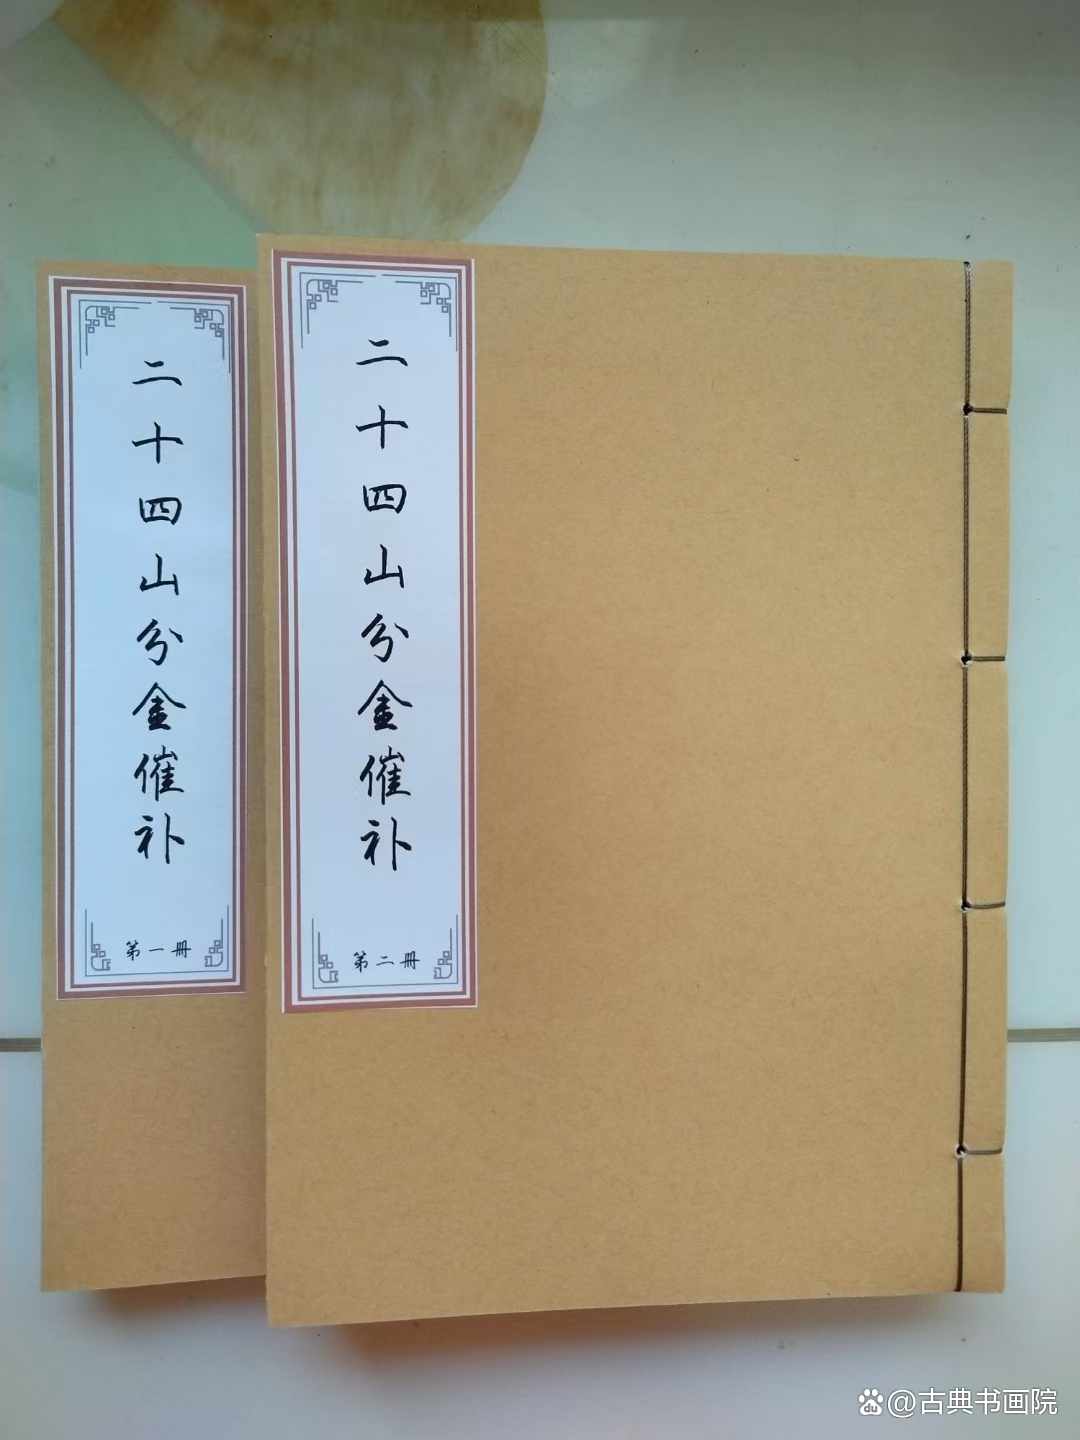 二十四山分金催补
第一冊
二十四山分金催补
第二冊
du @古典书画院